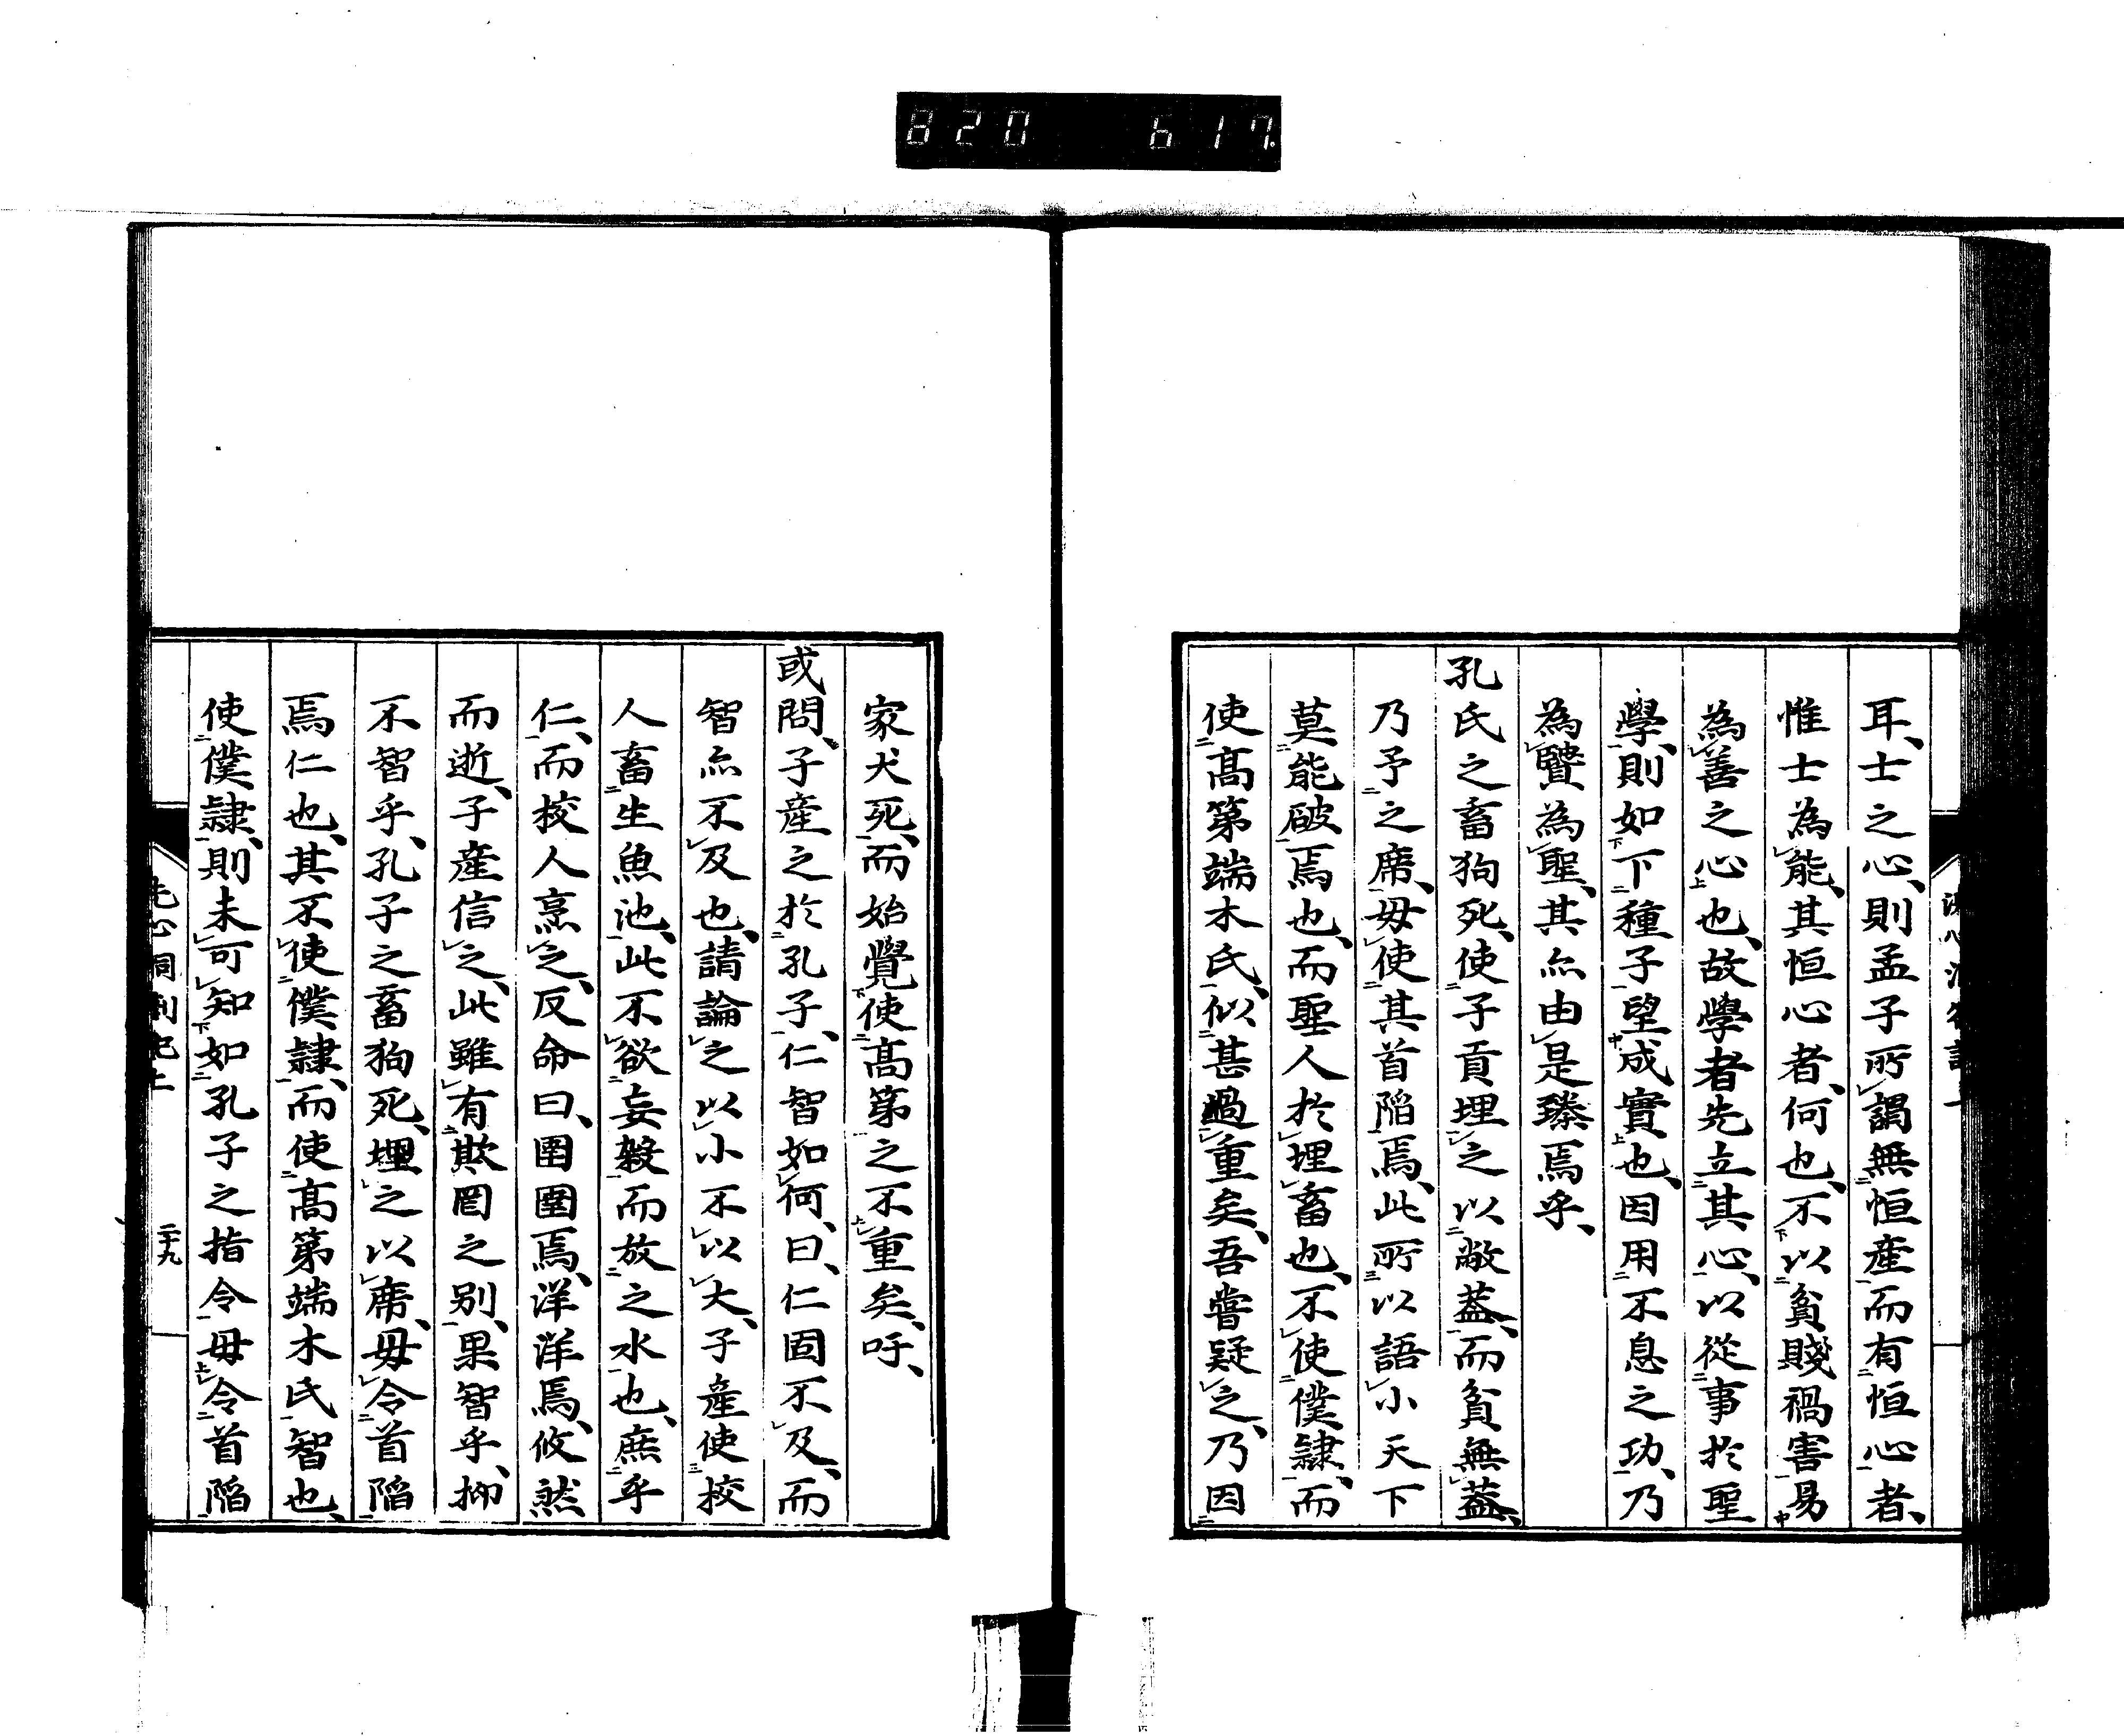 820 617.
耳、士之心、則孟子所謂無恒産而有恒心者、
惟士為能、其恒心者、何也、不以貧賤禍害易
為善之心也、故學者先立其心、以從事於聖
學、則如下種子望成實也、因用不息之功、乃
為賢為聖、其亦由是臻焉乎、
孔氏之畜狗死、使子貢埋之以敝蓋、而貧無蓋、
乃予之席、毋使其首陷焉、此所以語小天下
莫能破焉也、而聖人於埋畜也、不使僕隷、而
使髙第端木氏、似甚過重矣、吾嘗疑之、乃因
家犬死、而始覺使髙第之不重矣、吁、
或問、子産之於孔子、仁智如何、曰、仁固不及、而
智亦不及也、請論之以小不以大、子産使校
人畜生魚池、此不欲妄殺而放之水也、庶乎
仁、而校人烹之、反命曰、圉圉焉、洋洋焉、攸然
而逝、子産信之、此雖有欺罔之別、果智乎、抑
不智乎、孔子之畜狗死、埋之以席、毋令首陷
焉仁也、其不使僕隷、而使髙第端木氏智也、
使僕隷、則未可知如孔子之指令毋令首陷
先心洞劄記上
二十九